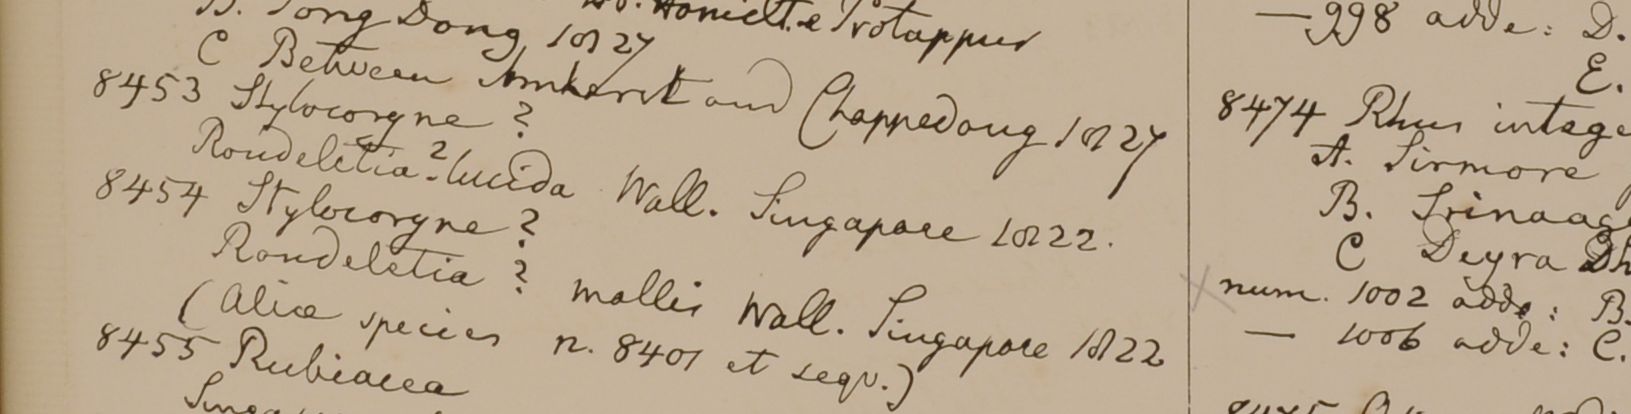 B. Tong Dong 1827
C Between Amherst and Chappedong 1827
8453 Stylocoryne ?
Rondeletia ? lucida Wall. Singapore 1822.
8454 Stylocoryne ?
Rondeletia ? mollis Wall. Singapore 1822
(Aliæ species n. 8401 et sequ.)
8455 Rubiacea
— 998 adde: D.
E.
8474 Rhus
A. Sirmore
B.
C Deyra
num. 1002 adde: B.
— 1006 adde: C.